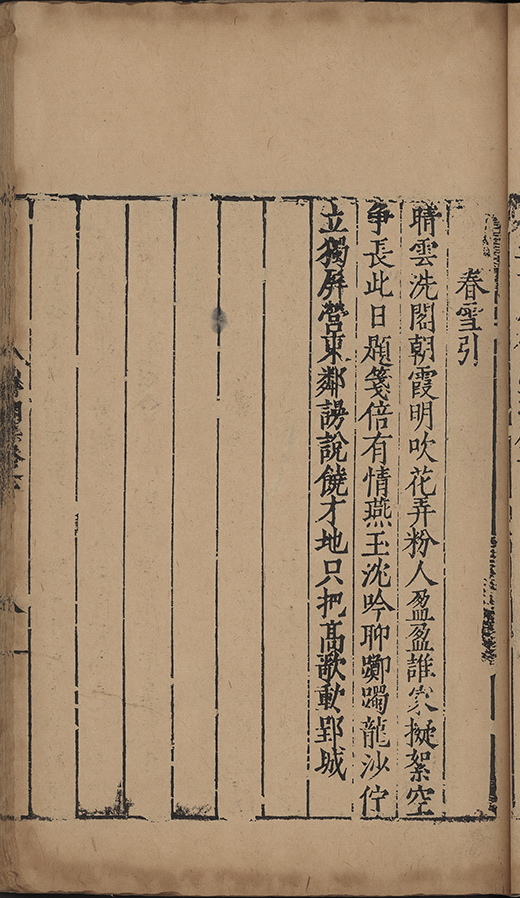 春雪引
晴雲洗閣朝霞明吹花弄粉人盈盈誰家擬絮空
爭長此日題箋倍有情燕玉沈吟聊躑躅龍沙佇
立獨屏營東鄰謾說饒才地只把高歌動郢城